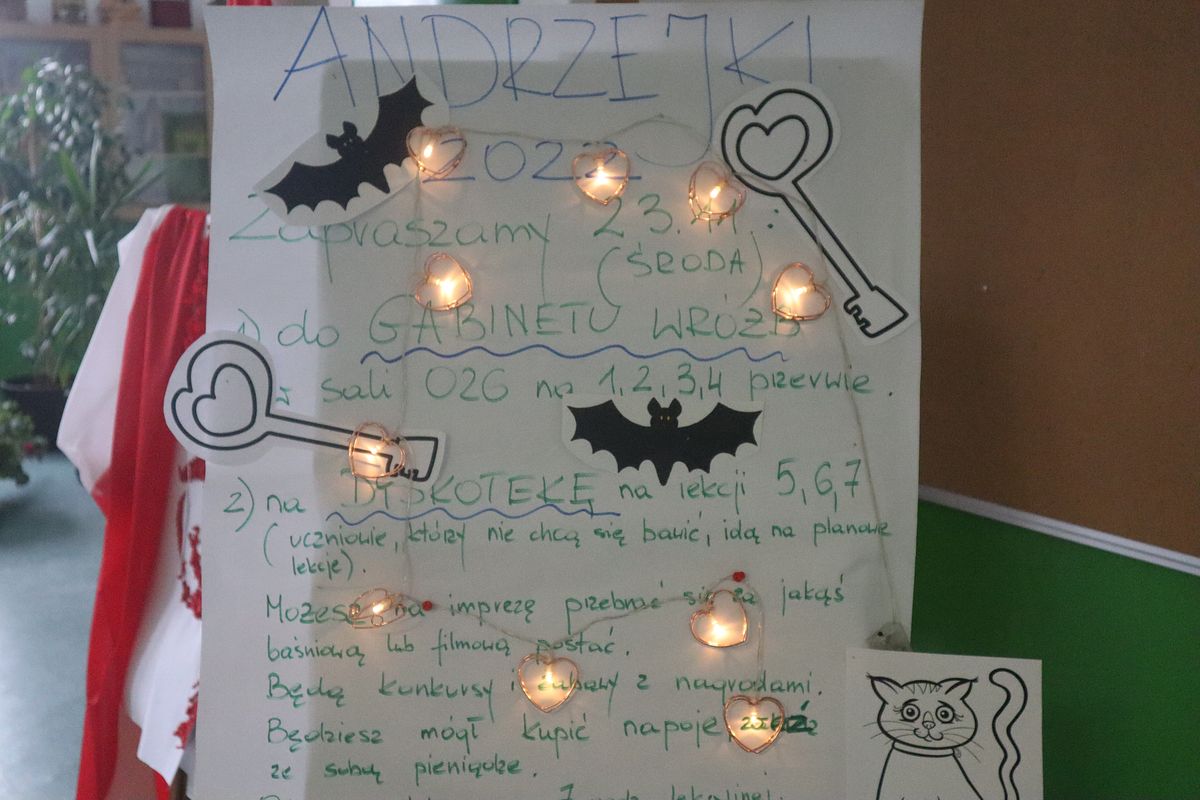 ANDRZEJKI
2022
Zapraszamy 23.11.:
(ŚRODA)
1) do GABINETU WRÓŻB
w sali 026 na 1,2,3,4 przerwie.
2) na DYSKOTEKĘ na lekcji 5,6,7
(uczniowie, którzy nie chcą się bawić, idą na planowe
lekcje).
Możesz na imprezę przebrać się za jakąś
baśniową lub filmową postać.
Będą konkursy i zabawy z nagrodami.
Będziesz mógł kupić napoje,
ze sobą pieniądze.
7 lekcyjnej